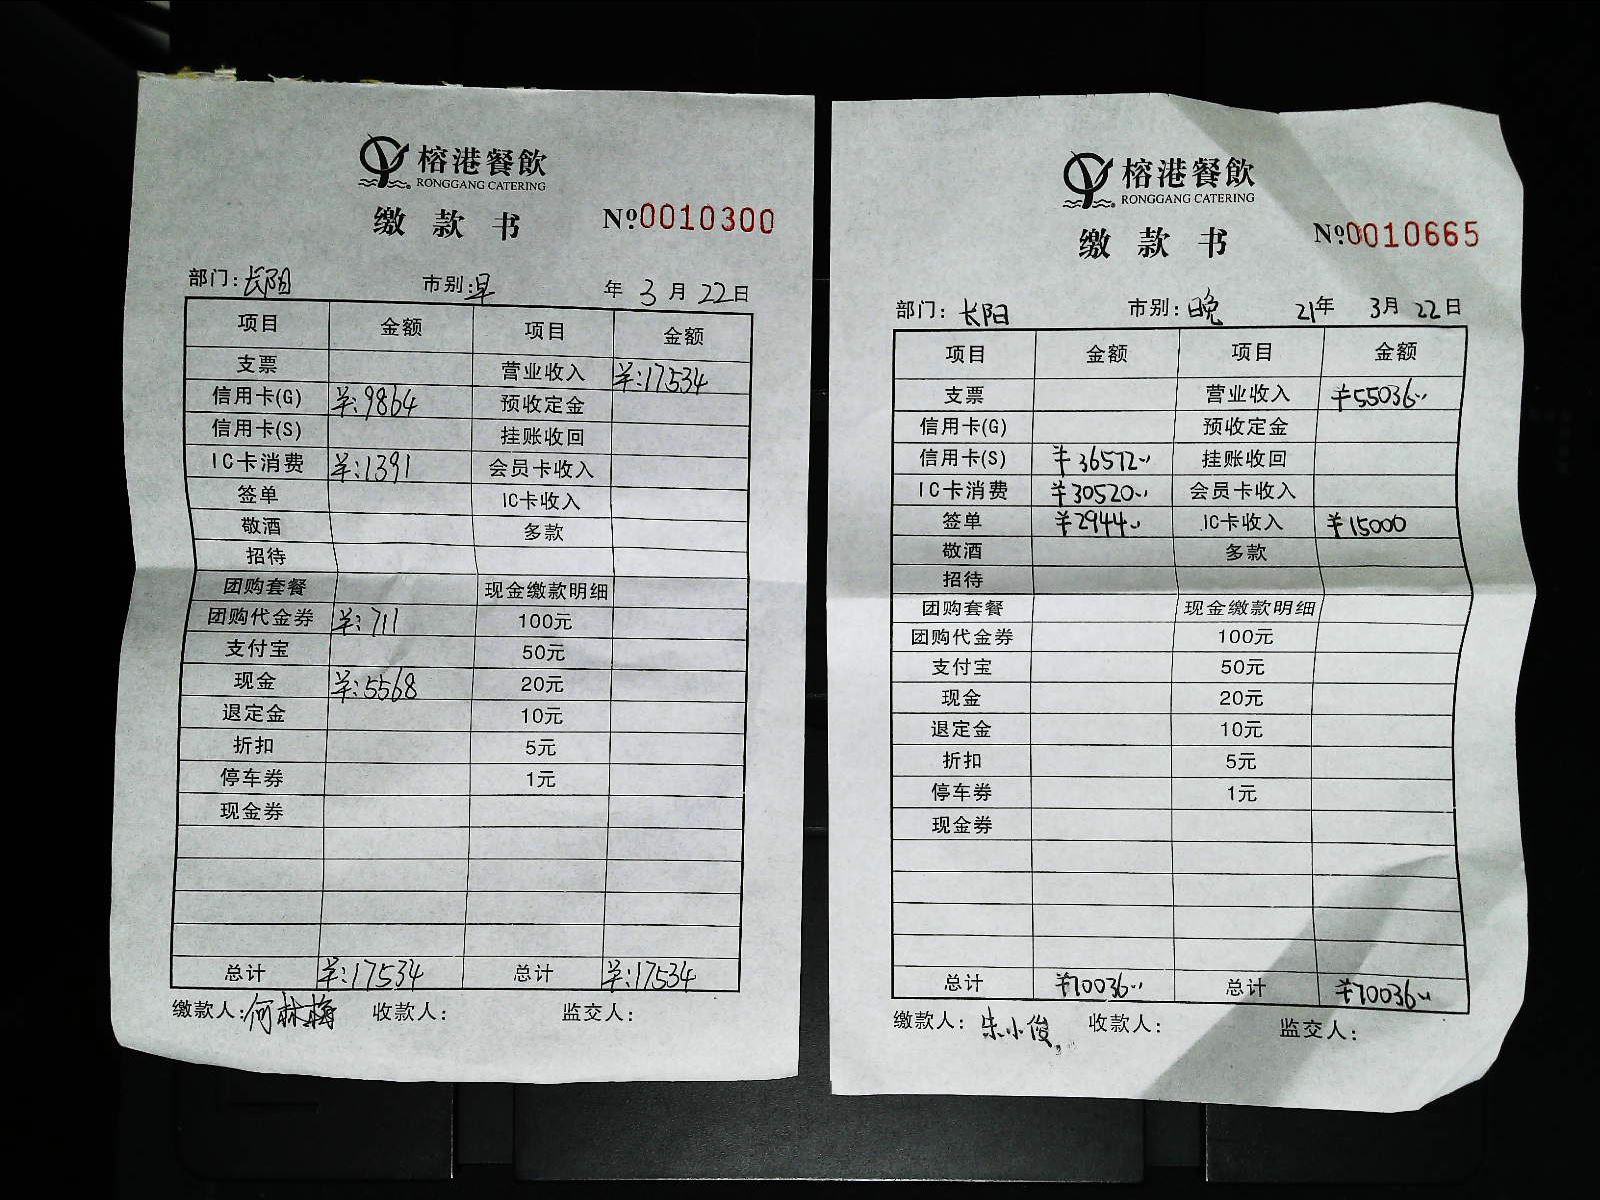 榕港餐飲
RONGGANG CATERING
缴款书 №0010300
部门:长阳 市别:早 年 3月 22日
项目 金额 项目 金额
支票 营业收入 ¥:17534
信用卡(G) ¥:9864 预收定金
信用卡(S) 挂账收回
IC卡消费 ¥:1391 会员卡收入
签单 IC卡收入
敬酒 多款
招待
团购套餐 现金缴款明细
团购代金券 ¥:711 100元
支付宝 50元
现金 ¥:5568 20元
退定金 10元
折扣 5元
停车券 1元
现金券
总计 ¥:17534 总计 ¥:17534
缴款人:何林梅 收款人: 监交人:
榕港餐飲
RONGGANG CATERING
缴款书 №0010665
部门:长阳 市别:晚 21年 3月 22日
项目 金额 项目 金额
支票 营业收入 ¥55036..
信用卡(G) 预收定金
信用卡(S) ¥36572.. 挂账收回
IC卡消费 ¥30520.. 会员卡收入
签单 ¥2944.. IC卡收入 ¥15000
敬酒 多款
招待
团购套餐 现金缴款明细
团购代金券 100元
支付宝 50元
现金 20元
退定金 10元
折扣 5元
停车券 1元
现金券
总计 ¥70036.. 总计 ¥70036..
缴款人:朱小俊 收款人: 监交人: